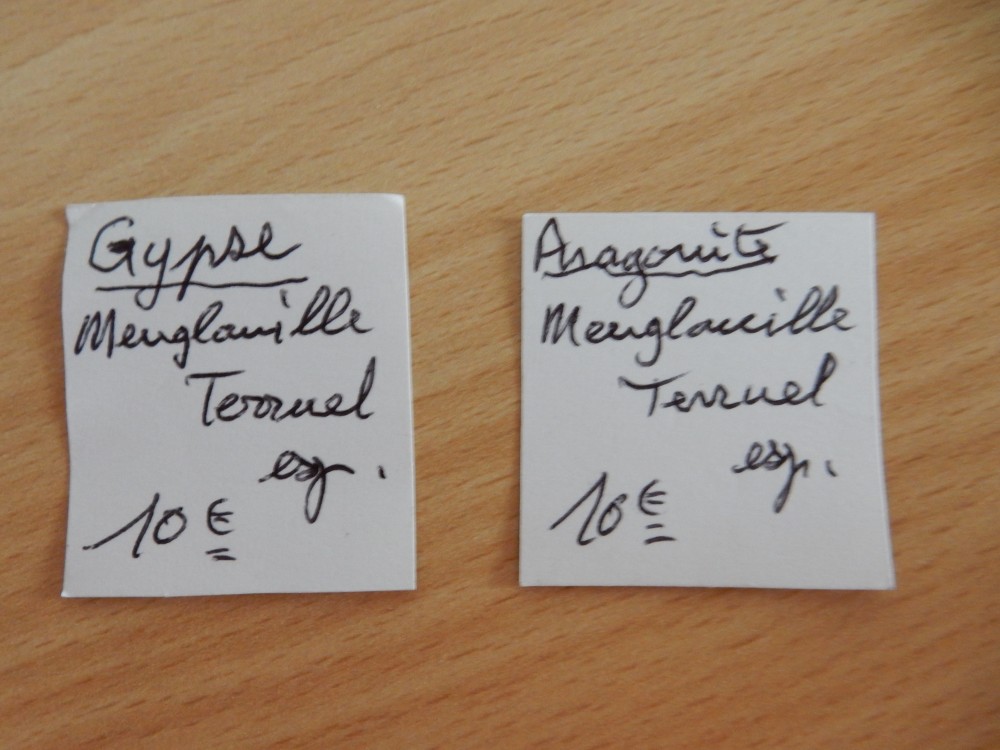 Gypse
Menglanille
Terruel
esp.
10 €
Aragonite
Menglanille
Terruel
esp.
10 €